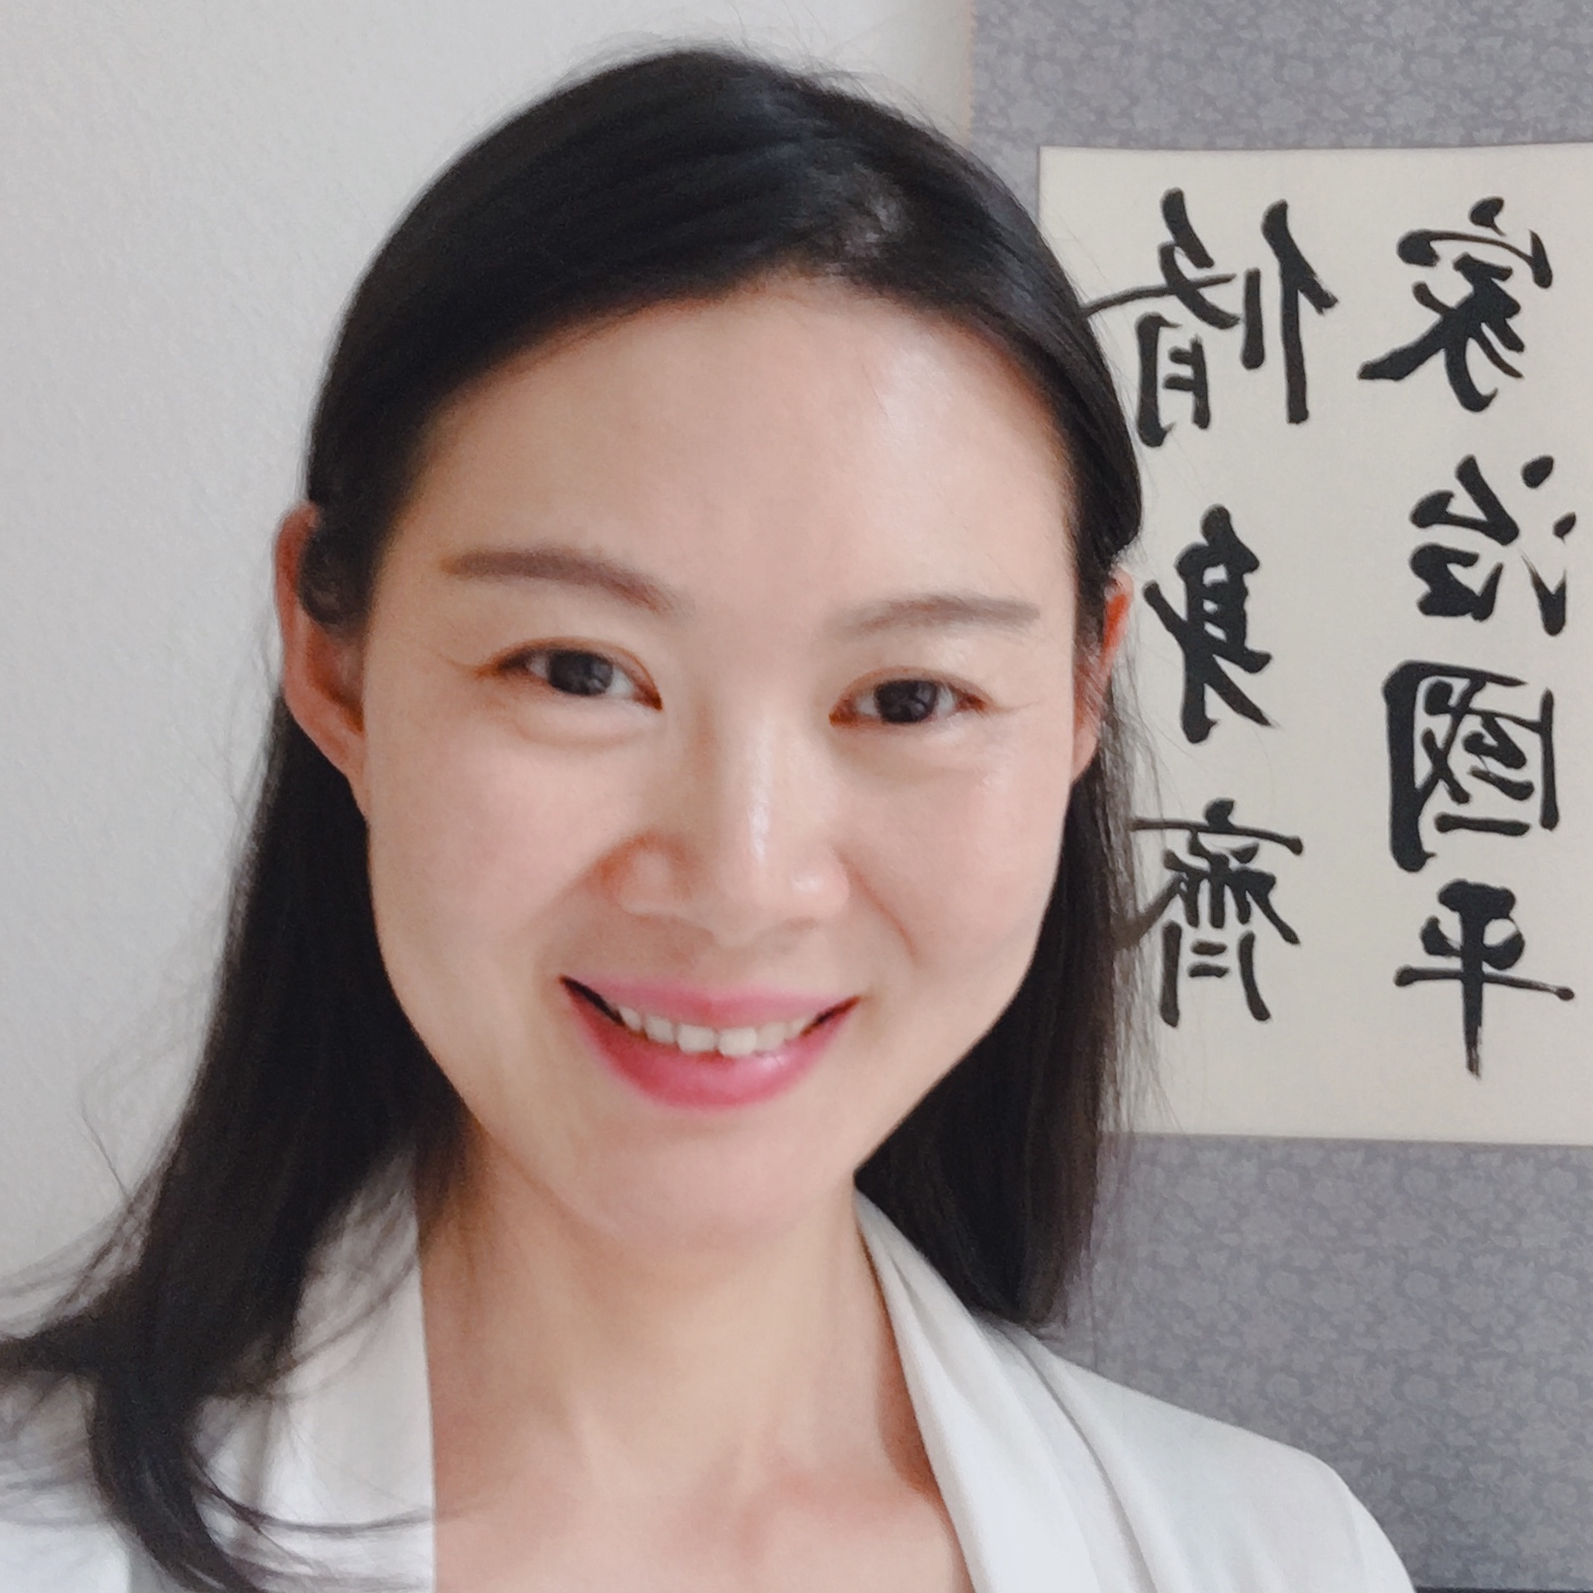 修身齊
家治國平